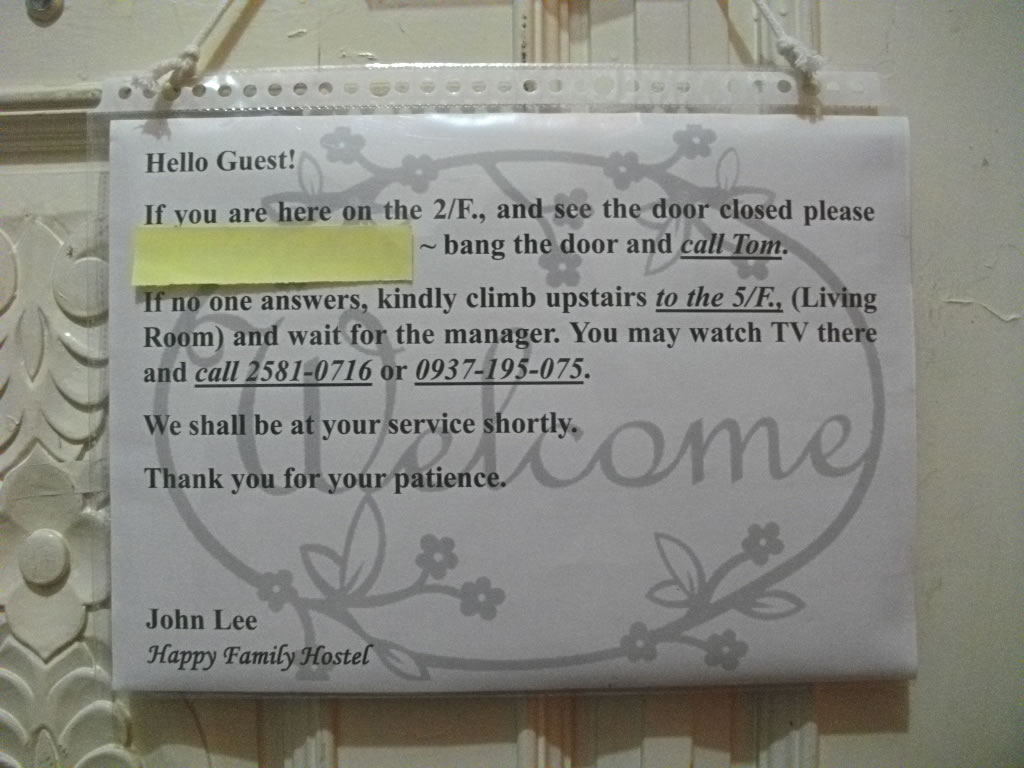 Hello Guest!
If you are here on the 2/F., and see the door closed please
~ bang the door and call Tom.
If no one answers, kindly climb upstairs to the 5/F., (Living
Room) and wait for the manager. You may watch TV there
and call 2581-0716 or 0937-195-075.
We shall be at your service shortly.
Welcome
Thank you for your patience.
John Lee
Happy Family Hostel